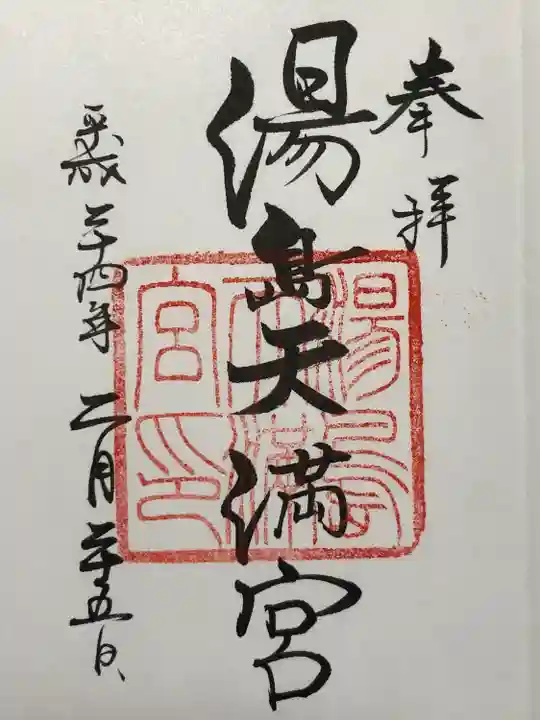 奉拝
湯島天満宮
湯島天満宮印
平成二十四年二月二十五日